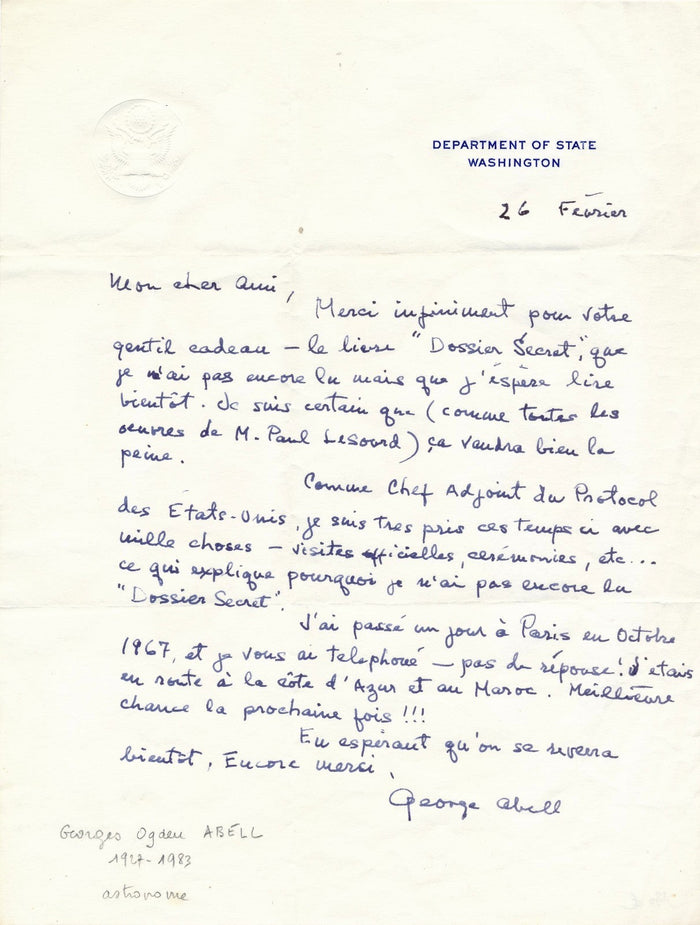 DEPARTMENT OF STATE
WASHINGTON
26 Février
Mon cher Ami,
Merci infiniment pour votre
gentil cadeau — le livre "Dossier Secret", que
je n'ai pas encore lu mais que j'éspère lire
bientôt. Je suis certain que (comme toutes les
oeuvres de M. Paul Lesourd) ça vaudra bien la
peine.
Comme Chef Adjoint du Protocol
des Etats-Unis, je suis tres pris ces temps ci avec
mille choses — visites officielles, cerémonies, etc...
ce qui explique pourquoi je n'ai pas encore lu
"Dossier Secret".
J'ai passé un jour à Paris en Octobre
1967, et je vous ai telephoné — pas de réponse! J'etais
en route à la côte d'Azur et au Maroc. Meilleure
chance la prochaine fois!!!
En espérant qu'on se reverra
bientôt, Encore merci,
George Abell
Georges Ogden ABELL
1927-1983
astronome